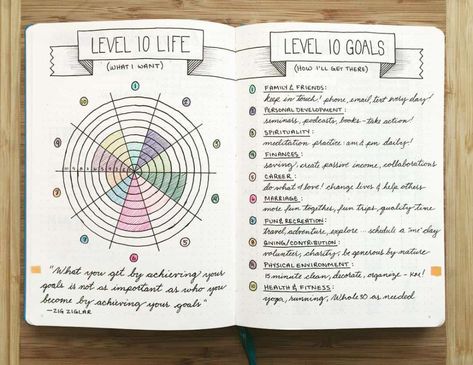 LEVEL 10 LIFE
(WHAT I WANT)
"What you get by achieving your
goals is not as important as who you
become by achieving your goals"
—ZIG ZIGLAR
LEVEL 10 GOALS
(HOW I'LL GET THERE)
1 FAMILY & FRIENDS:
keep in touch! phone, email, text every day!
2 PERSONAL DEVELOPMENT:
seminars, podcasts, books - take action!
3 SPIRITUALITY:
meditation practice: am & pm daily!
4 FINANCES:
saving! create passive income, collaborations
5 CAREER:
do what I love! change lives & help others
6 MARRIAGE:
more fun together, fun trips, quality time
7 FUN & RECREATION:
travel, adventure, explore... schedule a "me" day
8 GIVING/CONTRIBUTION:
volunteer, charity; be generous by nature
9 PHYSICAL ENVIRONMENT:
15 minute clean, decorate, organize -
10 HEALTH & FITNESS:
yoga, running, Whole30 as needed